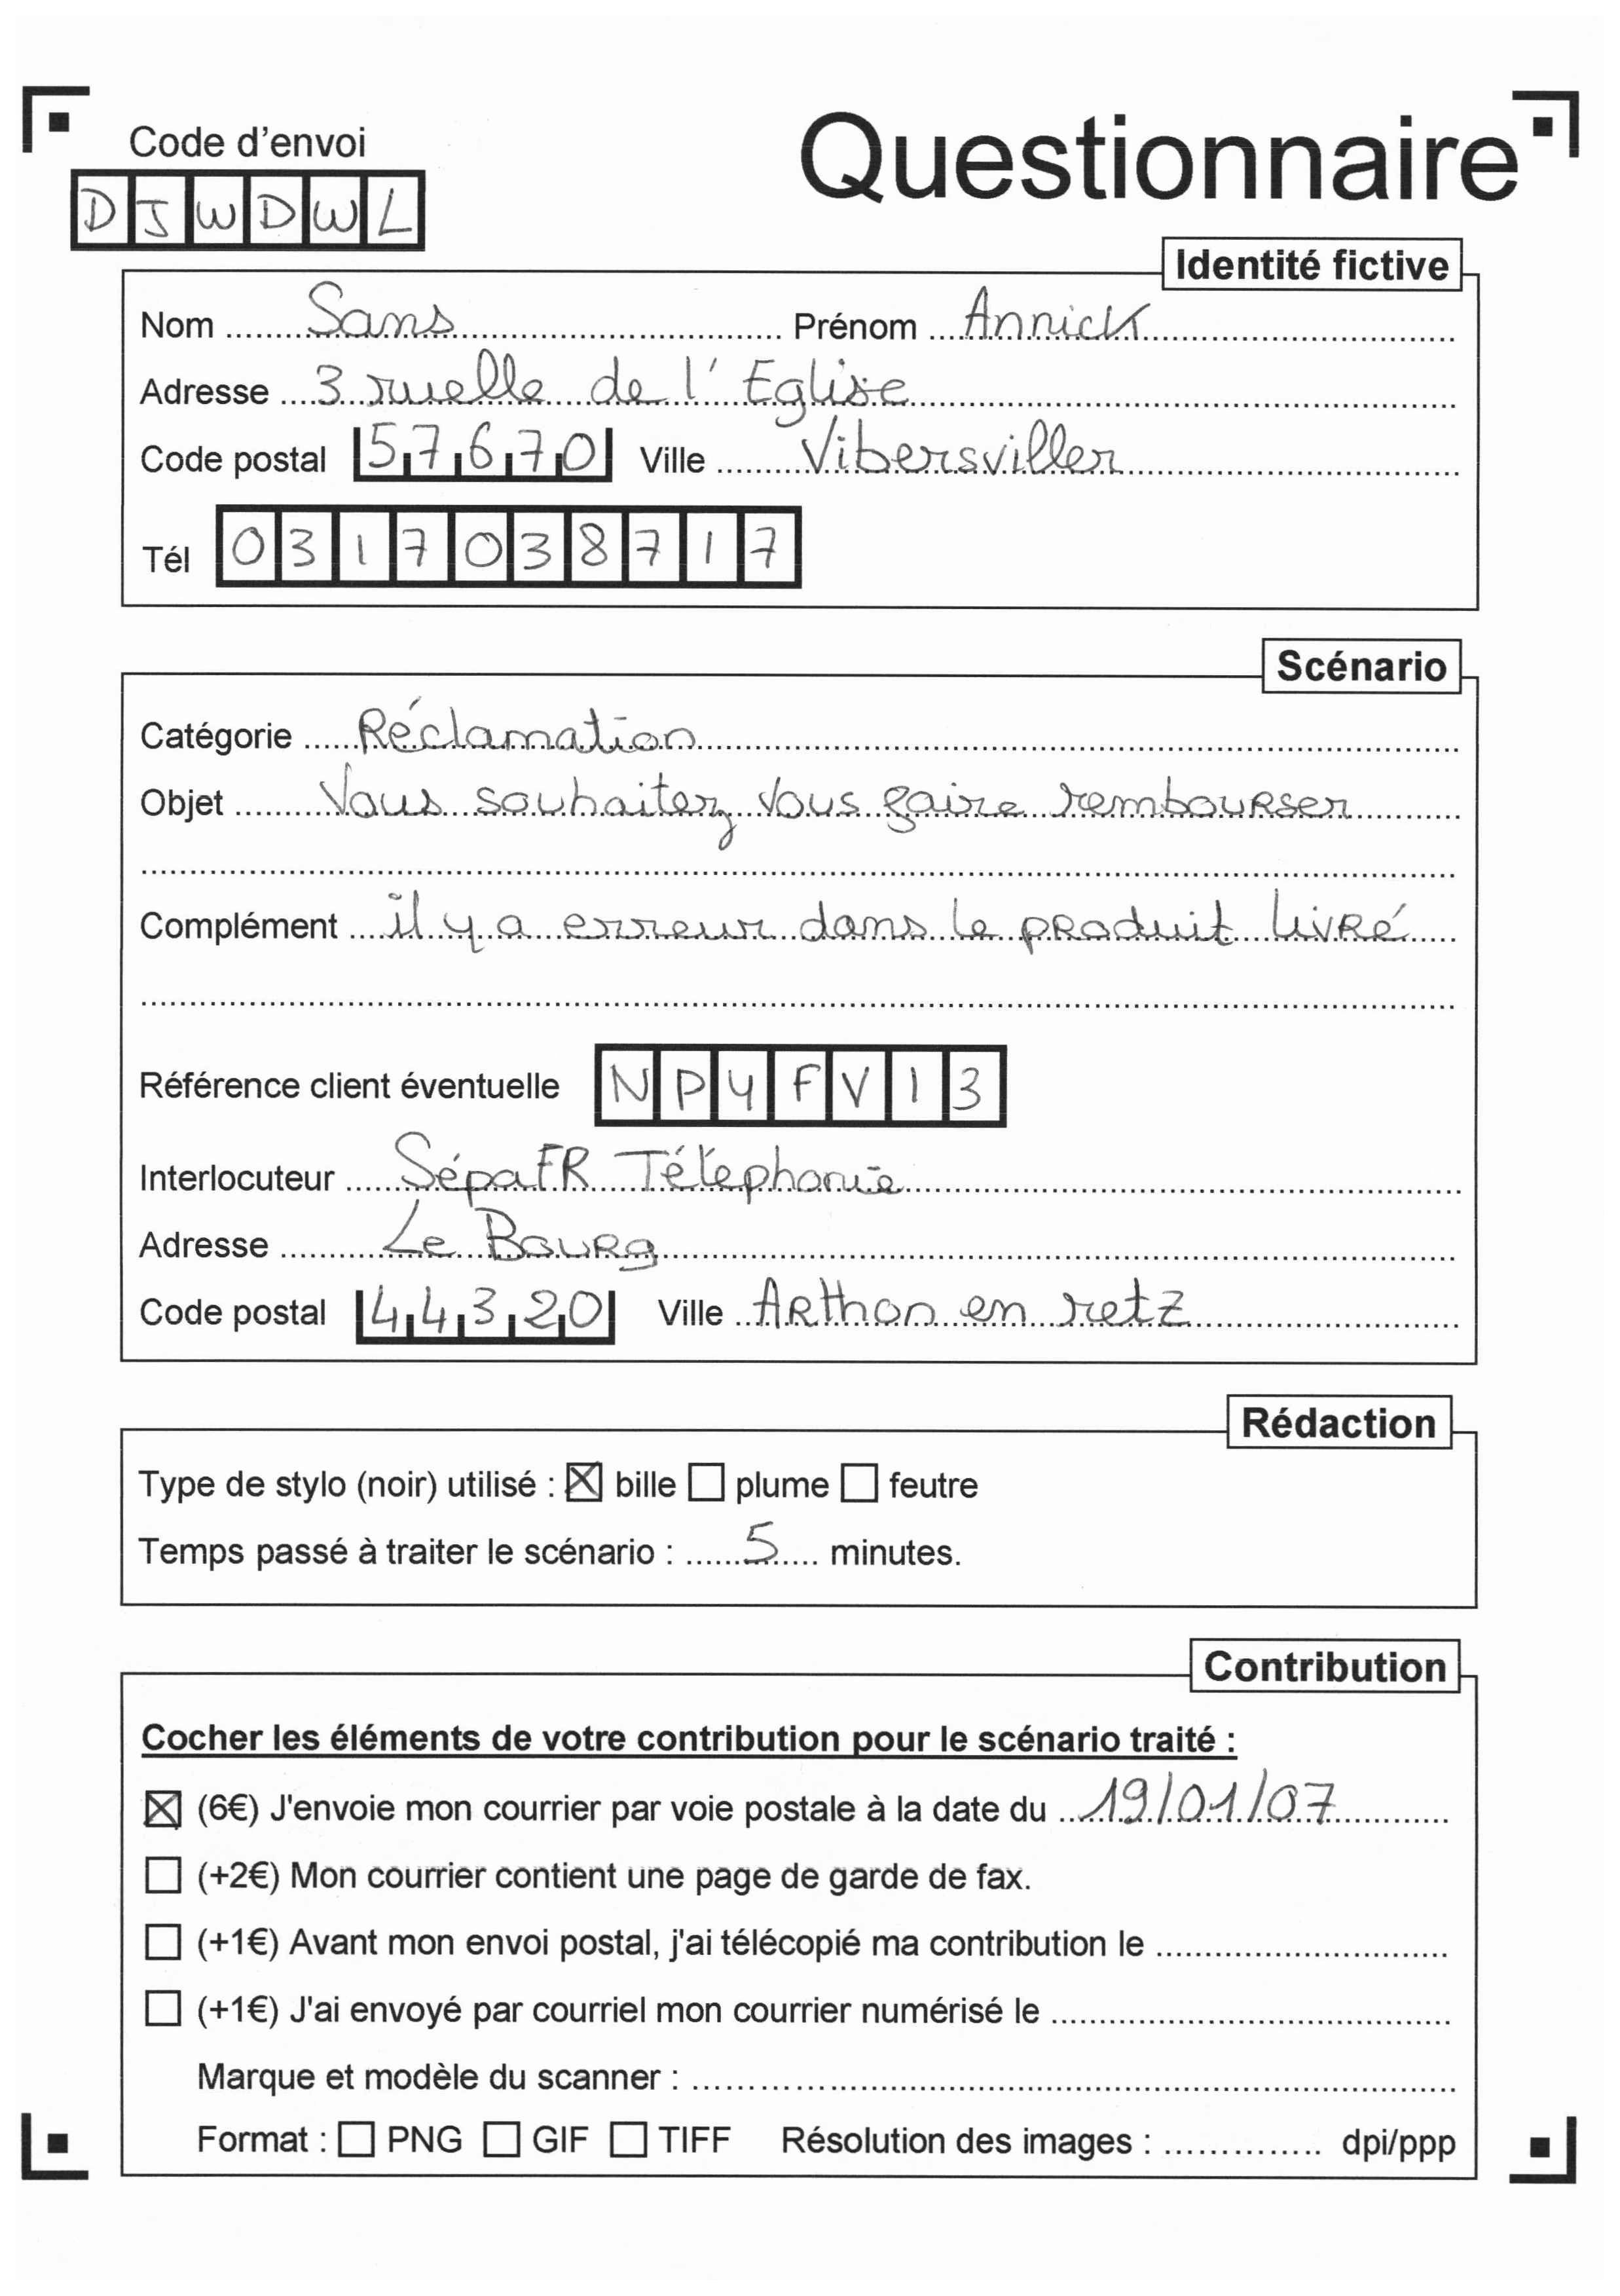 Code d'envoi
Questionnaire
DJWDWL
Identité fictive
Nom Sans Prénom Annick
Adresse 3 ruelle de l'Eglise
Code postal 57670 Ville Vibersviller
Tél 0317038717
Scénario
Catégorie Réclamation
Objet Vous souhaitez vous faire rembourser
Complément il y a erreur dans le produit livré
Référence client éventuelle NPYFV13
Interlocuteur SépaFR Téléphonie
Adresse Le Bourg
Code postal 44320 Ville Arthon en retz
Rédaction
Type de stylo (noir) utilisé : ☒ bille ☐ plume ☐ feutre
Temps passé à traiter le scénario : 5 minutes.
Contribution
Cocher les éléments de votre contribution pour le scénario traité :
☒ (6€) J'envoie mon courrier par voie postale à la date du 19/01/07
☐ (+2€) Mon courrier contient une page de garde de fax.
☐ (+1€) Avant mon envoi postal, j'ai télécopié ma contribution le
☐ (+1€) J'ai envoyé par courriel mon courrier numérisé le
Marque et modèle du scanner :
Format : ☐ PNG ☐ GIF ☐ TIFF Résolution des images : dpi/ppp